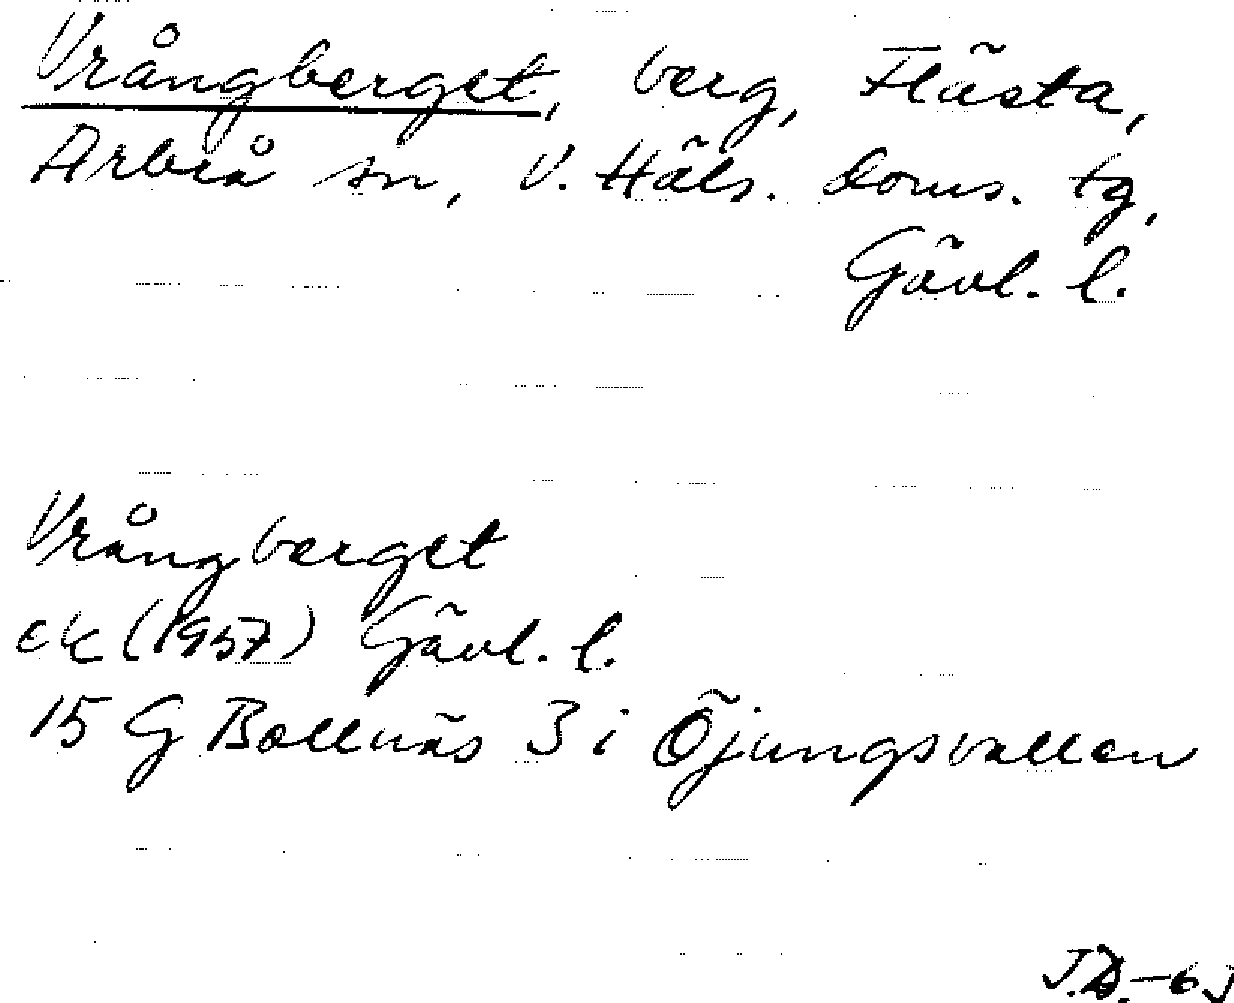 Vrångberget, berg, Flästa,
Arbrå sn, V. Häls. doms. tg,
Gävl. l.
Vrångberget
ek (1957) Gävl. l.
15 G Bollnäs 3 i Öjungsvallen
J.D.